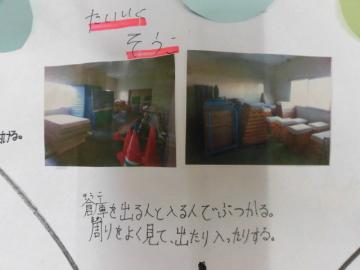 たいいく
そうこ
ける。
そうこ
蒼庫を出る人と入る人でぶつかる。
周りをよく見て、出たり入ったりする。